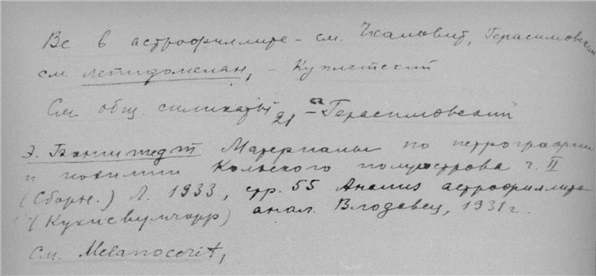 Be в астрофиллите – см. Икановит, Герасимовский
см. лепидомелан, – Куплетский
См. общ силикаты 21 – Герасимовский
Э. Бонштедт Материалы по петрографии
и геохимии Кольского полуострова ч. II
(Сборн.) Л. 1933, стр. 55 Анализ астрофиллита
(Кукисвумчорр) анал. Влодавец, 1931 г.
См. Melanocerit,